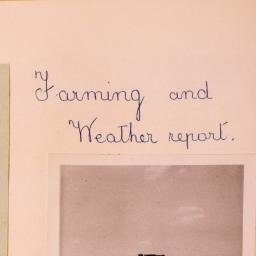 Farming and
Weather report.